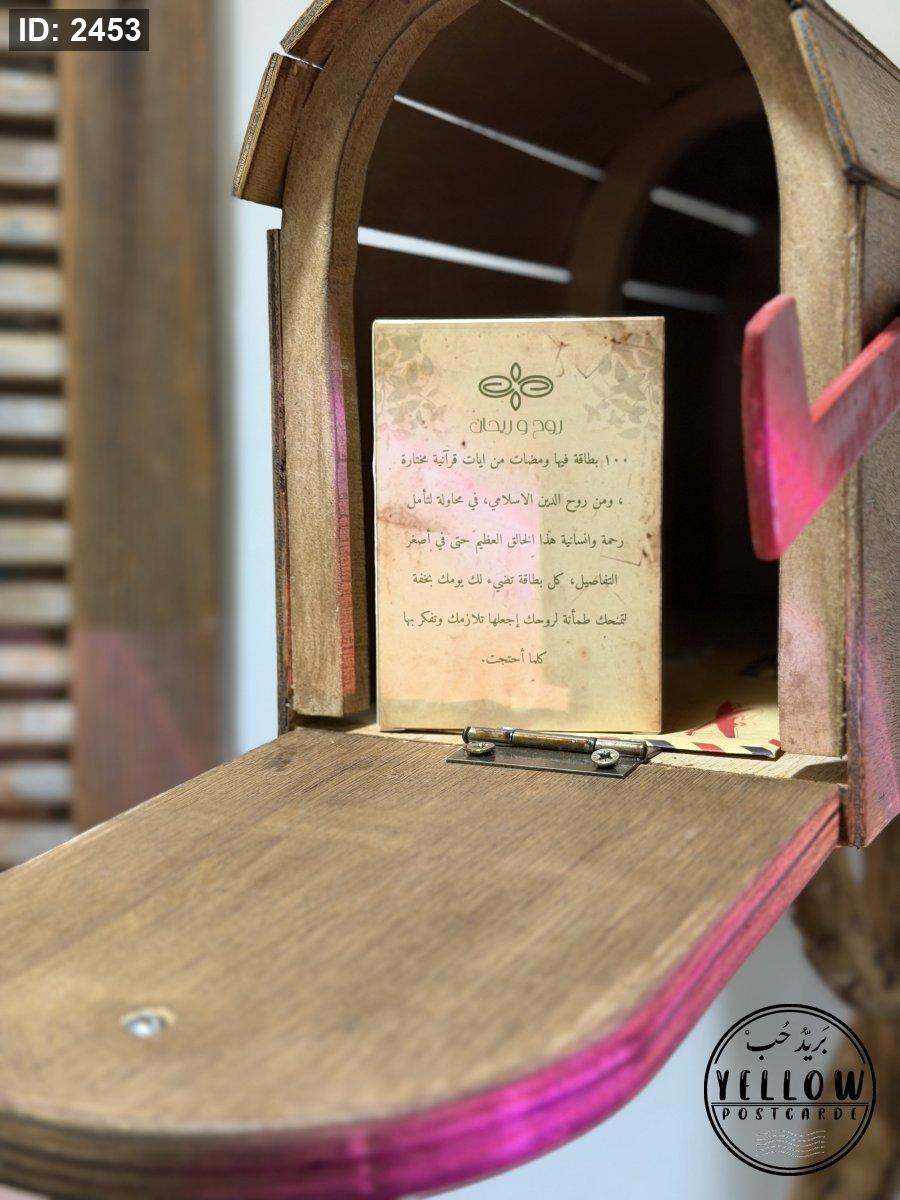 ID: 2453
روح و ريحان
١٠٠ بطاقة فيها ومضات من ايات قرآنية مختارة
، ومن روح الدين الاسلامي، في محاولة لتأمل
رحمة وانسانية هذا الخالق العظيم حتى في أصغر
التفاصيل، كل بطاقة تضيء لك يومك بخفة
لتمنحك طمأنة لروحك إجعلها تلازمك وتفكر بها
كلما أحتجت.
بَريدُ حُبْ
YELLOW
POSTCARDE